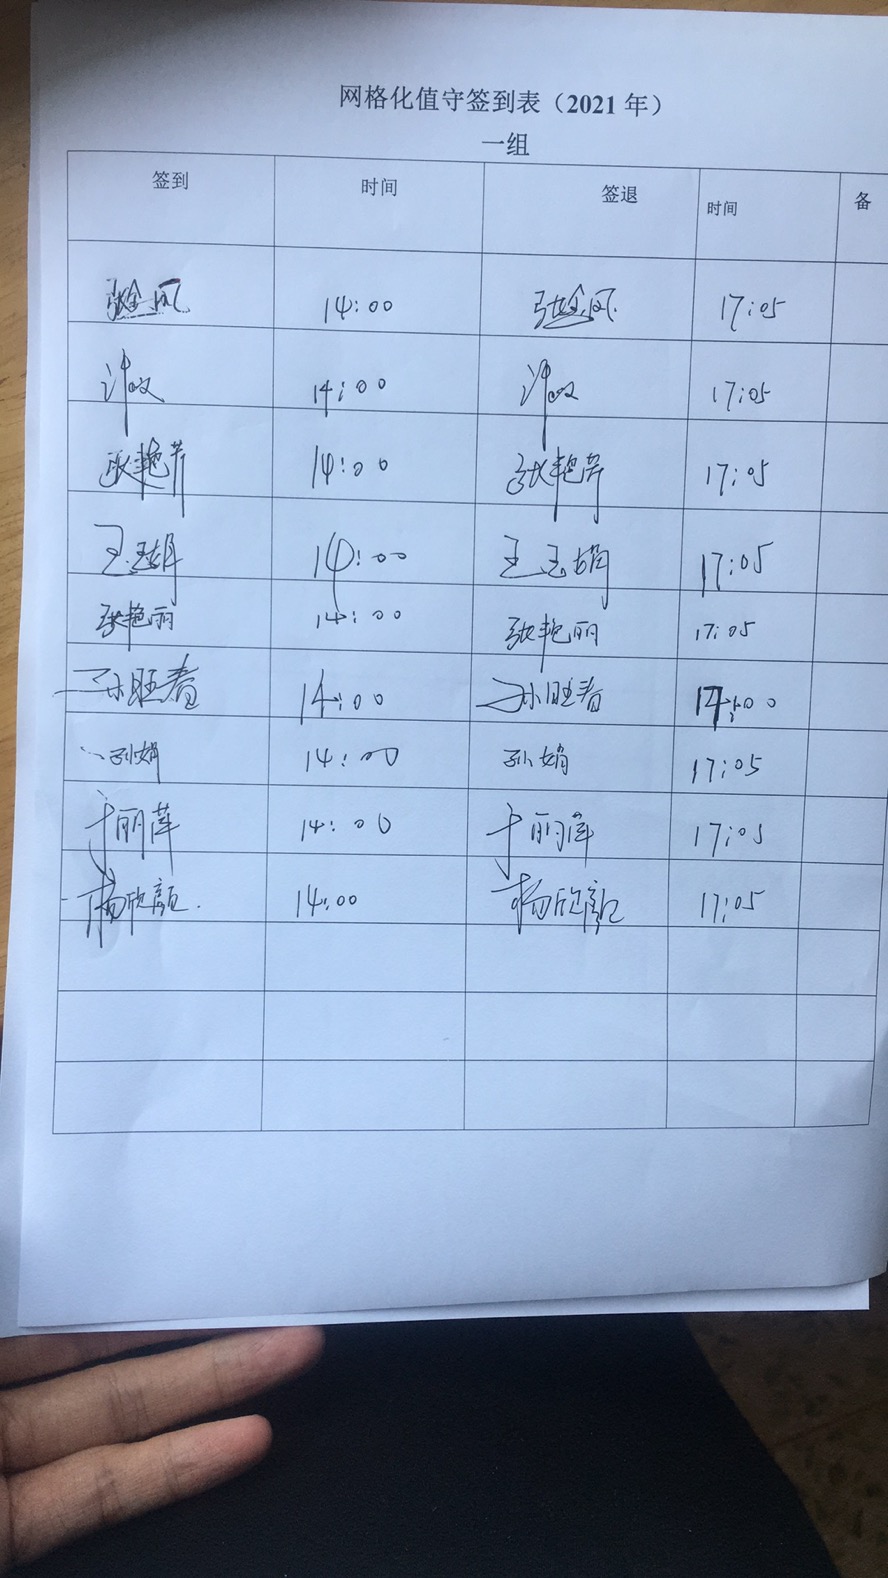 网格化值守签到表（2021 年）
一组
签到 时间 签退 时间 备
张金凤 14:00 张金凤 17:05
许 14:00 许 17:05
张艳芹 14:00 张艳芹 17:05
王玉娟 14:00 王玉娟 17:05
张艳丽 14:00 张艳丽 17:05
孙旺春 14:00 孙旺春 17:00
孙娟 14:00 孙娟 17:05
于丽萍 14:00 于丽萍 17:05
杨欣颜 14:00 杨欣颜 17:05